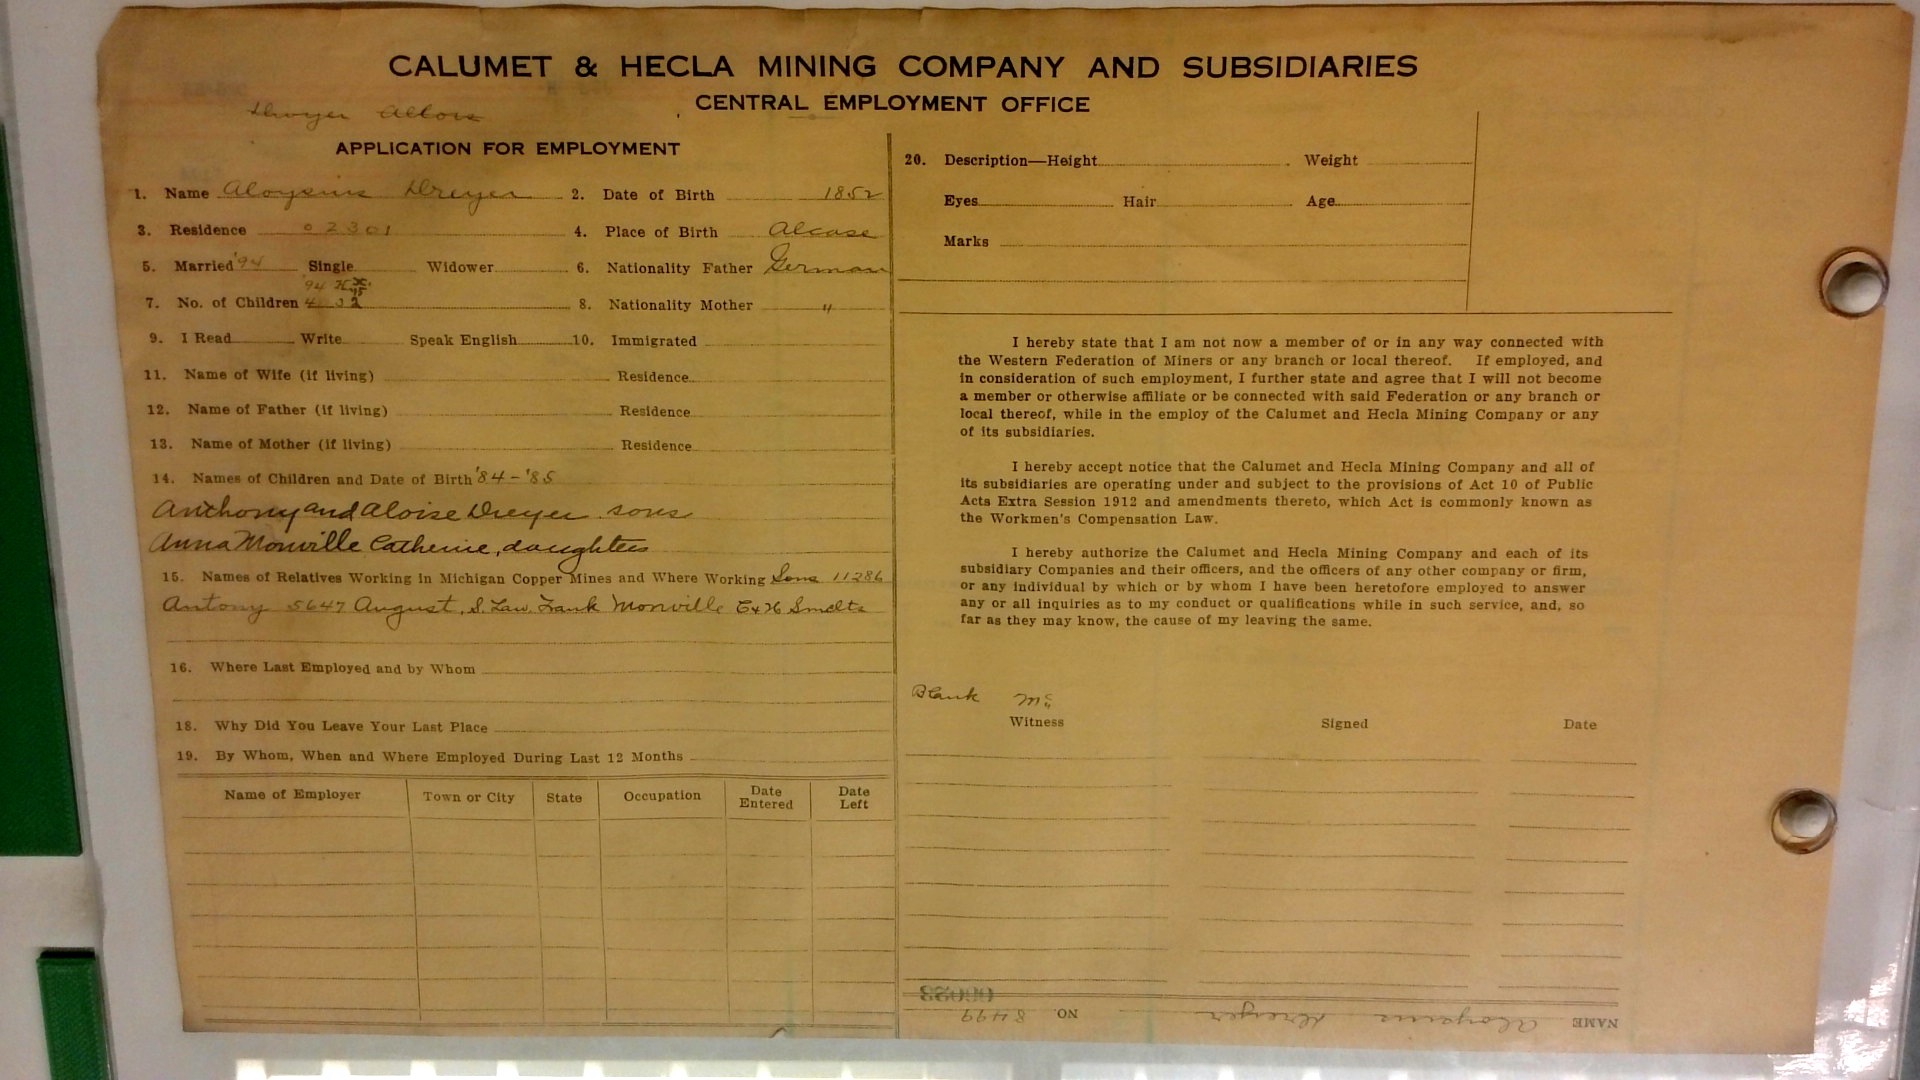 CALUMET & HECLA MINING COMPANY AND SUBSIDIARIES
CENTRAL EMPLOYMENT OFFICE
APPLICATION FOR EMPLOYMENT
1. Name Aloysius Dreyer 2. Date of Birth 1852
3. Residence 02301 4. Place of Birth Alcase
5. Married '94 Single Widower 6. Nationality Father German
7. No. of Children 8. Nationality Mother "
9. I Read Write Speak English 10. Immigrated
11. Name of Wife (if living) Residence
12. Name of Father (if living) Residence
13. Name of Mother (if living) Residence
14. Names of Children and Date of Birth '84-'85
Anthony and Aloise Dreyer sons
Anna Monville Catherine, daughters
15. Names of Relatives Working in Michigan Copper Mines and Where Working Sons 11286
Antony 5647 August, S. Law. Frank Monville C&H Smelts
16. Where Last Employed and by Whom
18. Why Did You Leave Your Last Place
19. By Whom, When and Where Employed During Last 12 Months
Name of Employer Town or City State Occupation Date Entered Date Left
20. Description—Height Weight
Eyes Hair Age
Marks
I hereby state that I am not now a member of or in any way connected with
the Western Federation of Miners or any branch or local thereof. If employed, and
in consideration of such employment, I further state and agree that I will not become
a member or otherwise affiliate or be connected with said Federation or any branch or
local thereof, while in the employ of the Calumet and Hecla Mining Company or any
of its subsidiaries.
I hereby accept notice that the Calumet and Hecla Mining Company and all of
its subsidiaries are operating under and subject to the provisions of Act 10 of Public
Acts Extra Session 1912 and amendments thereto, which Act is commonly known as
the Workmen's Compensation Law.
I hereby authorize the Calumet and Hecla Mining Company and each of its
subsidiary Companies and their officers, and the officers of any other company or firm,
or any individual by which or by whom I have been heretofore employed to answer
any or all inquiries as to my conduct or qualifications while in such service, and, so
far as they may know, the cause of my leaving the same.
Blank
Witness Signed Date
NAME Aloysius Dreyer NO. 8499